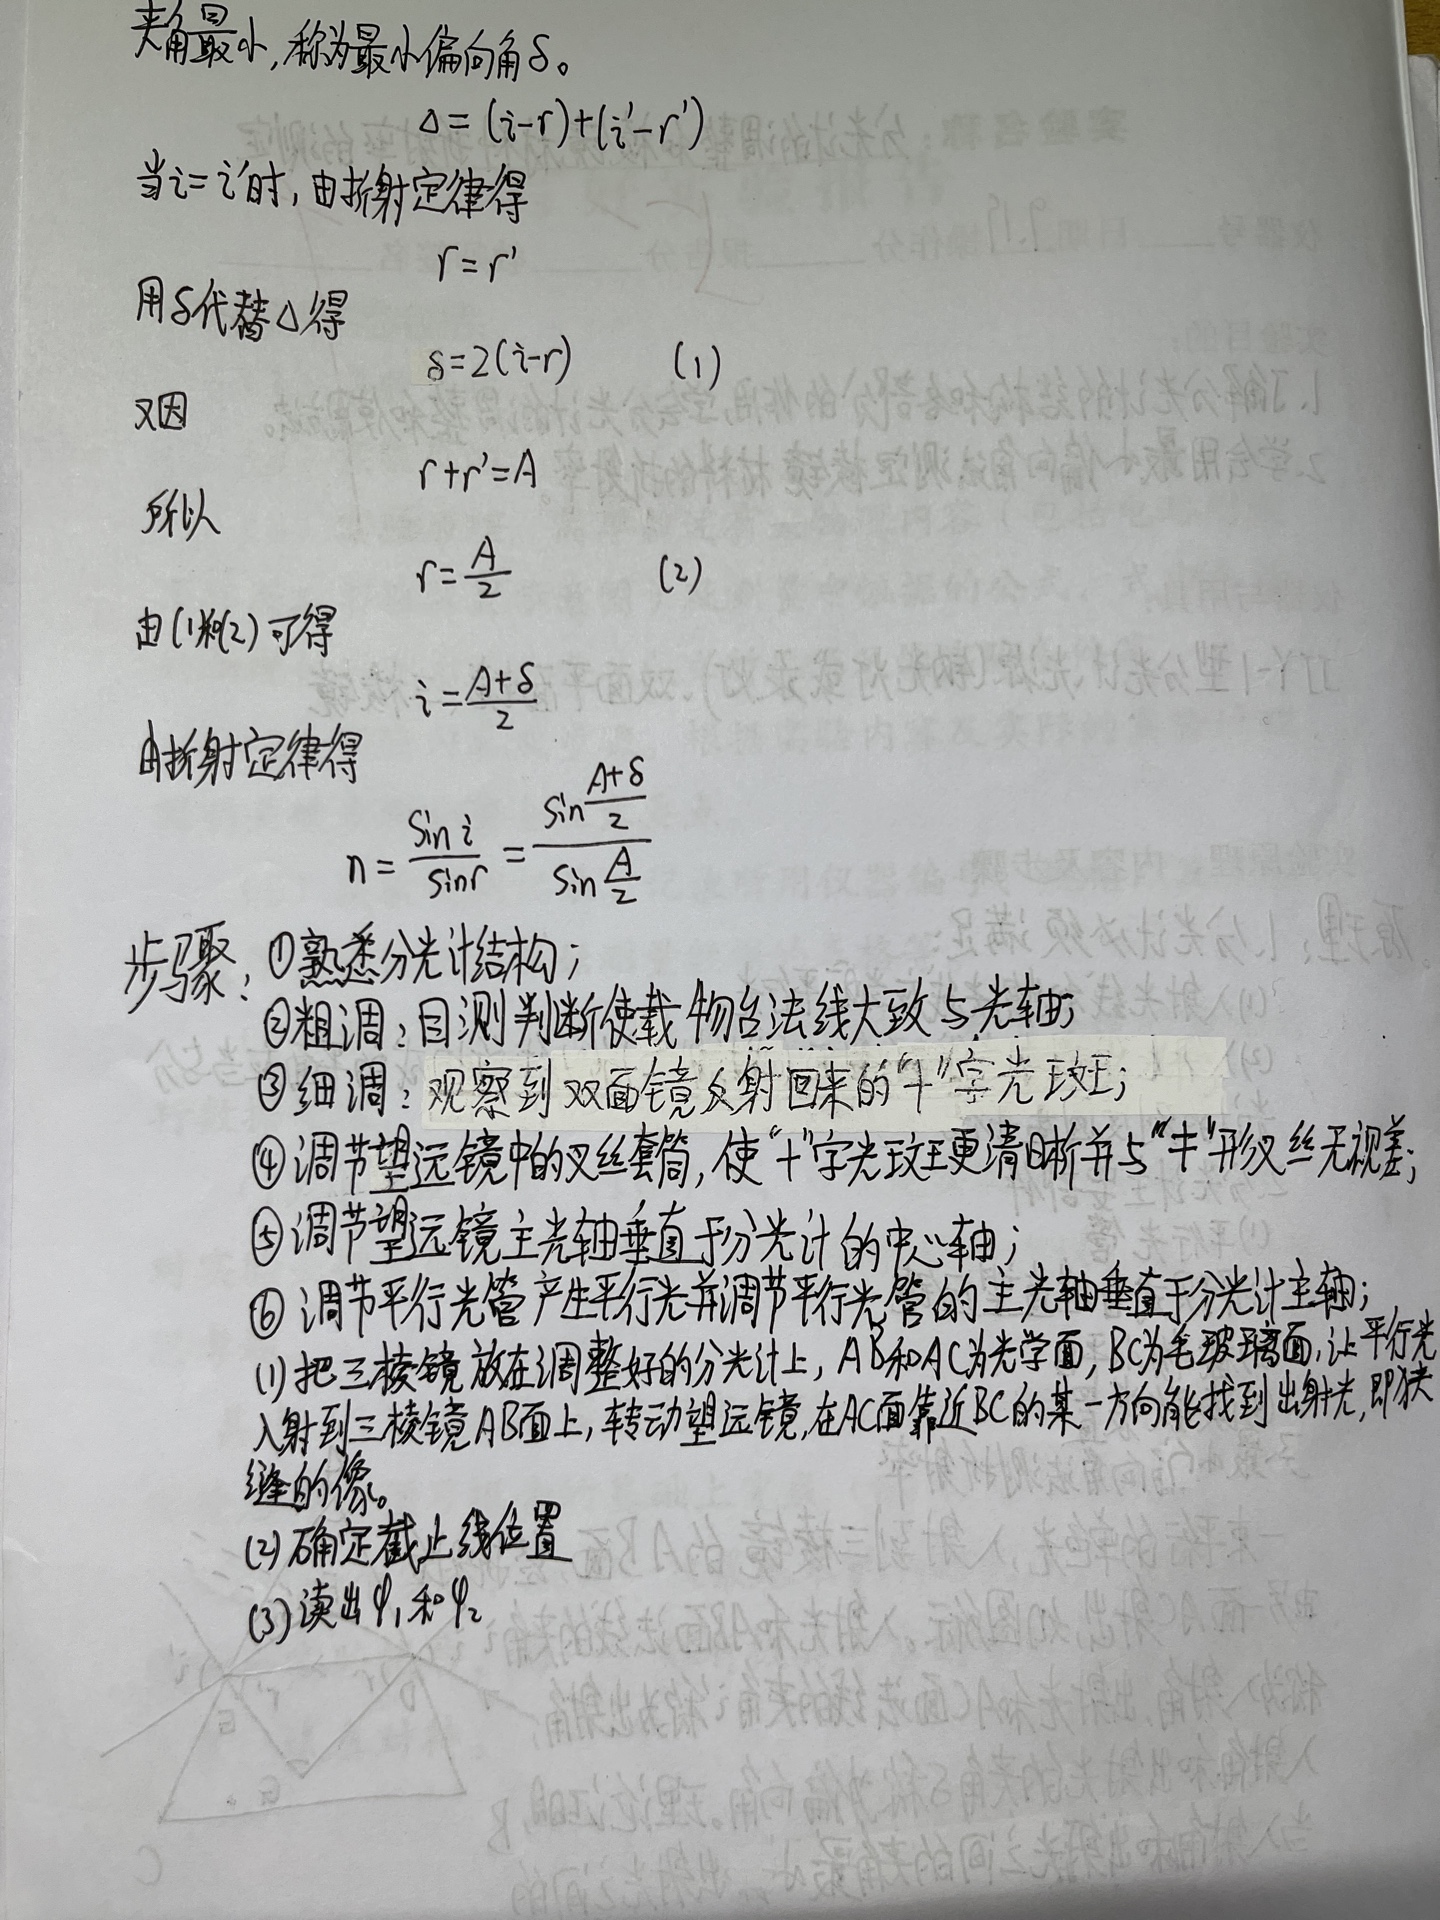 夹角最小,称为最小偏向角δ。
Δ=(i-r)+(i'-r')
当i=i'时,由折射定律得
r=r'
用δ代替Δ得
δ=2(i-r) (1)
又因
r+r'=A
所以
r=A/2 (2)
由(1)和(2)可得
i=(A+δ)/2
由折射定律得
n=sin i/sin r=sin((A+δ)/2)/sin(A/2)
步骤:①熟悉分光计结构;
②粗调:目测判断使载物台法线大致与光轴;
③细调:观察到双面镜反射回来的“十”字光斑;
④调节望远镜中的叉丝套筒,使“十”字光斑更清晰并与“丰”形叉丝无视差;
⑤调节望远镜主光轴垂直于分光计的中心轴;
⑥调节平行光管产生平行光并调节平行光管的主光轴垂直于分光计主轴;
(1)把三棱镜放在调整好的分光计上,AB和AC为光学面,BC为毛玻璃面,让平行光
入射到三棱镜AB面上,转动望远镜,在AC面靠近BC的某一方向能找到出射光,即狭
缝的像。
(2)确定截止线位置
(3)读出φ₁和φ₂